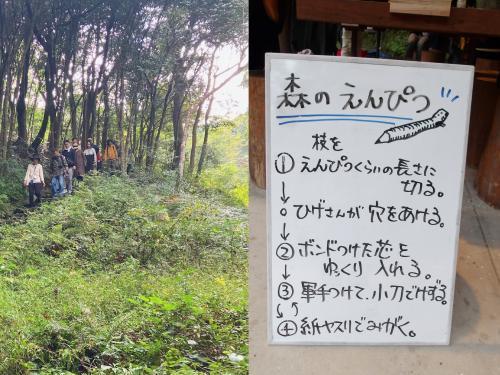 森のえんぴつ
枝を
① えんぴつくらいの長さに
切る。
ひげさんが穴をあける。
② ボンドつけた芯を
ゆっくり入れる。
③ 軍手つけて、小刀でけずる。
④ 紙ヤスリでみがく。